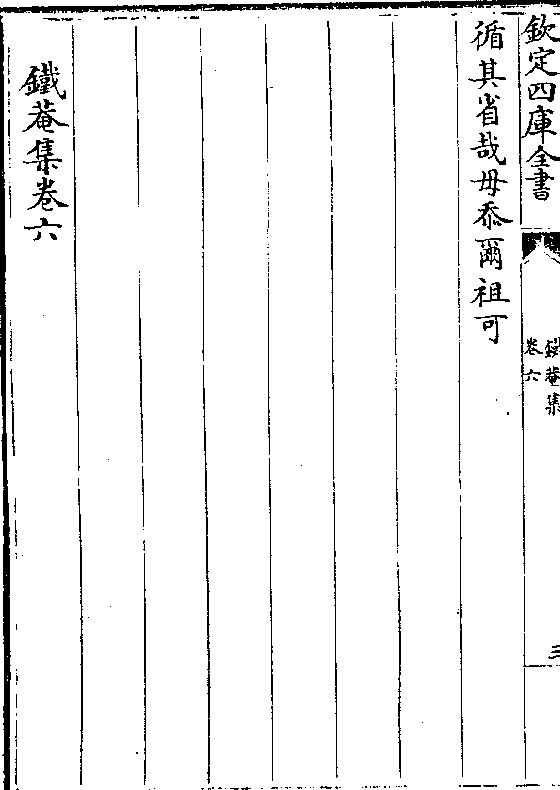 欽定四庫全書
鐵菴集
卷六
循其省哉毋忝爾祖可
鐵菴集卷六